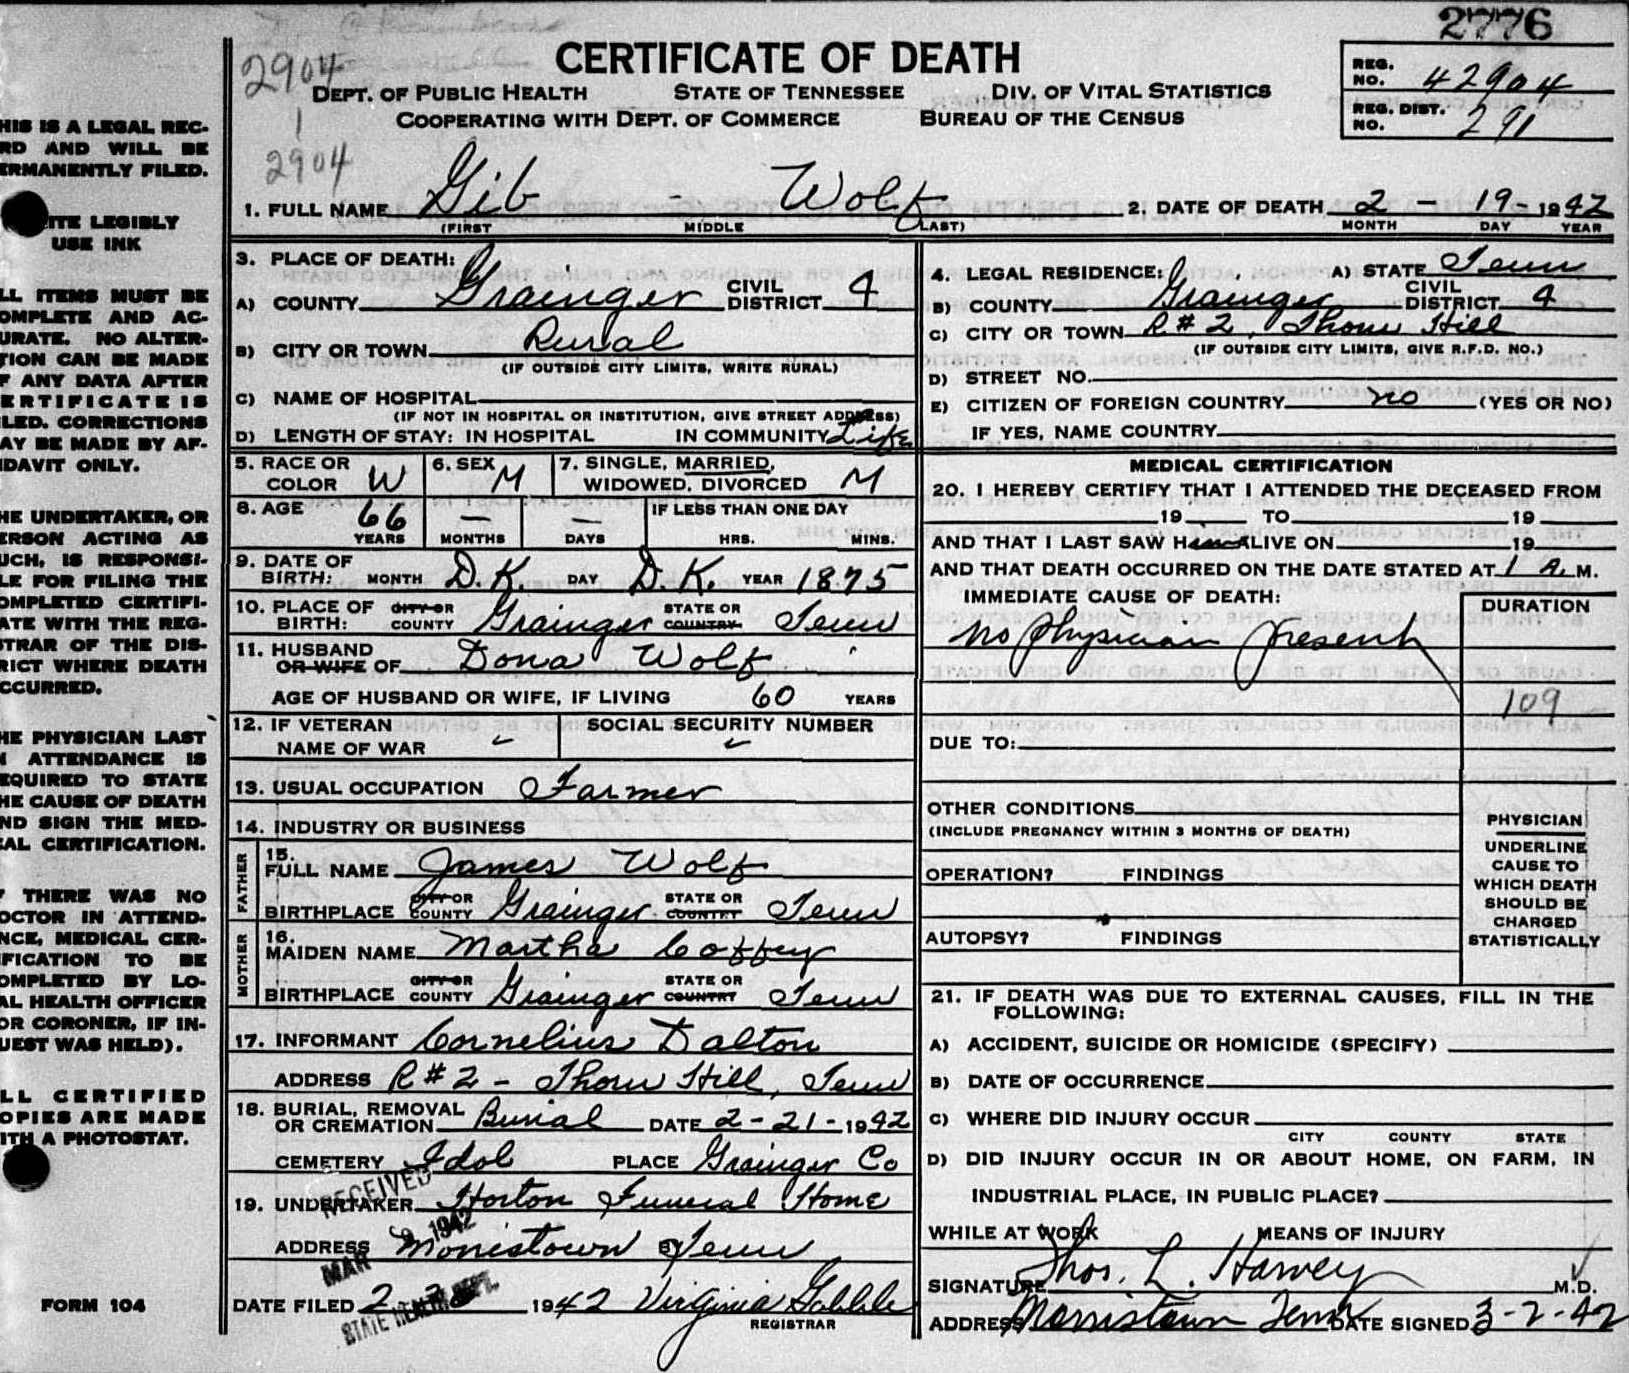 2776
CERTIFICATE OF DEATH
2904
1
2904
DEPT. OF PUBLIC HEALTH STATE OF TENNESSEE DIV. OF VITAL STATISTICS
COOPERATING WITH DEPT. OF COMMERCE BUREAU OF THE CENSUS
REG. NO. 42904
REG. DIST. NO. 291
HIS IS A LEGAL REC-
RD AND WILL BE
ERMANENTLY FILED.
ITE LEGIBLY
USE INK
LL ITEMS MUST BE
OMPLETE AND AC-
URATE. NO ALTER-
TION CAN BE MADE
F ANY DATA AFTER
ERTIFICATE IS
LED. CORRECTIONS
AY BE MADE BY AF-
IDAVIT ONLY.
HE UNDERTAKER, OR
ERSON ACTING AS
UCH, IS RESPONSI-
LE FOR FILING THE
OMPLETED CERTIFI-
ATE WITH THE REG-
STRAR OF THE DIS-
RICT WHERE DEATH
CCURRED.
HE PHYSICIAN LAST
N ATTENDANCE IS
EQUIRED TO STATE
HE CAUSE OF DEATH
ND SIGN THE MED-
CAL CERTIFICATION.
F THERE WAS NO
OCTOR IN ATTEND-
NCE, MEDICAL CER-
FICATION TO BE
OMPLETED BY LO-
AL HEALTH OFFICER
OR CORONER, IF IN-
UEST WAS HELD).
LL CERTIFIED
OPIES ARE MADE
ITH A PHOTOSTAT.
FORM 104
1. FULL NAME Gib - Wolf
(FIRST MIDDLE LAST)
2. DATE OF DEATH 2 - 19 - 1942
MONTH DAY YEAR
3. PLACE OF DEATH:
A) COUNTY Grainger CIVIL DISTRICT 4
B) CITY OR TOWN Rural
(IF OUTSIDE CITY LIMITS, WRITE RURAL)
C) NAME OF HOSPITAL
(IF NOT IN HOSPITAL OR INSTITUTION, GIVE STREET ADDRESS)
D) LENGTH OF STAY: IN HOSPITAL IN COMMUNITY Life
4. LEGAL RESIDENCE: A) STATE Tenn
B) COUNTY Grainger CIVIL DISTRICT 4
C) CITY OR TOWN R#2, Thorn Hill
(IF OUTSIDE CITY LIMITS, GIVE R.F.D. NO.)
D) STREET NO.
E) CITIZEN OF FOREIGN COUNTRY no (YES OR NO)
IF YES, NAME COUNTRY
5. RACE OR COLOR W 6. SEX M 7. SINGLE, MARRIED, WIDOWED, DIVORCED M
8. AGE 66 YEARS — MONTHS — DAYS IF LESS THAN ONE DAY HRS. MINS.
9. DATE OF BIRTH: MONTH D.K. DAY D.K. YEAR 1875
10. PLACE OF BIRTH: CITY OR COUNTY Grainger STATE OR COUNTRY Tenn
11. HUSBAND OR WIFE OF Dona Wolf
AGE OF HUSBAND OR WIFE, IF LIVING 60 YEARS
12. IF VETERAN NAME OF WAR SOCIAL SECURITY NUMBER
13. USUAL OCCUPATION Farmer
14. INDUSTRY OR BUSINESS
FATHER
15. FULL NAME James Wolf
BIRTHPLACE CITY OR COUNTY Grainger STATE OR COUNTRY Tenn
MOTHER
16. MAIDEN NAME Martha Coffey
BIRTHPLACE CITY OR COUNTY Grainger STATE OR COUNTRY Tenn
17. INFORMANT Cornelius Dalton
ADDRESS R#2 - Thorn Hill, Tenn
18. BURIAL, REMOVAL OR CREMATION Burial DATE 2-21-1942
CEMETERY Idol PLACE Grainger Co
19. UNDERTAKER Horton Funeral Home
ADDRESS Morristown Tenn
RECEIVED
MAR 9 1942
STATE HEALTH DEPT.
DATE FILED 2 1942 Virginia
REGISTRAR
MEDICAL CERTIFICATION
20. I HEREBY CERTIFY THAT I ATTENDED THE DECEASED FROM
19 TO 19
AND THAT I LAST SAW Him ALIVE ON 19
AND THAT DEATH OCCURRED ON THE DATE STATED AT 1 A.M.
IMMEDIATE CAUSE OF DEATH: DURATION
No physician present
109
DUE TO:
OTHER CONDITIONS
(INCLUDE PREGNANCY WITHIN 3 MONTHS OF DEATH)
OPERATION? FINDINGS
AUTOPSY? FINDINGS
PHYSICIAN
UNDERLINE
CAUSE TO
WHICH DEATH
SHOULD BE
CHARGED
STATISTICALLY
21. IF DEATH WAS DUE TO EXTERNAL CAUSES, FILL IN THE
FOLLOWING:
A) ACCIDENT, SUICIDE OR HOMICIDE (SPECIFY)
B) DATE OF OCCURRENCE
C) WHERE DID INJURY OCCUR
CITY COUNTY STATE
D) DID INJURY OCCUR IN OR ABOUT HOME, ON FARM, IN
INDUSTRIAL PLACE, IN PUBLIC PLACE?
WHILE AT WORK MEANS OF INJURY
SIGNATURE Thos. L. Harvey M.D.
ADDRESS Morristown Tenn DATE SIGNED 3-2-42